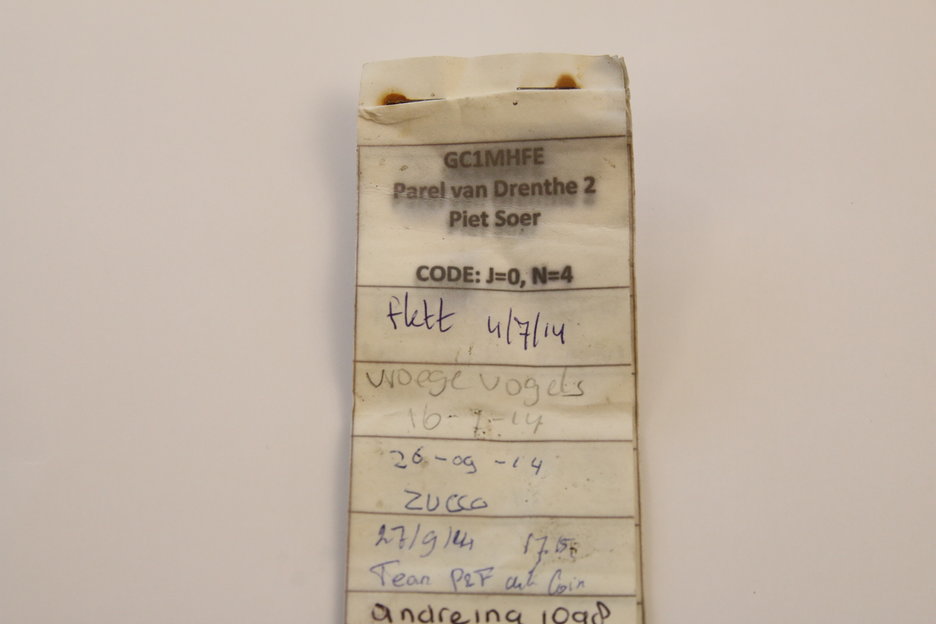 GC1MHFE
Parel van Drenthe 2
Piet Soer
CODE: J=0, N=4
fktt 4/7/14
vroege vogels
16-7-14
26-09-14
zucco
27/9/14
Team P&F
andreina 1098